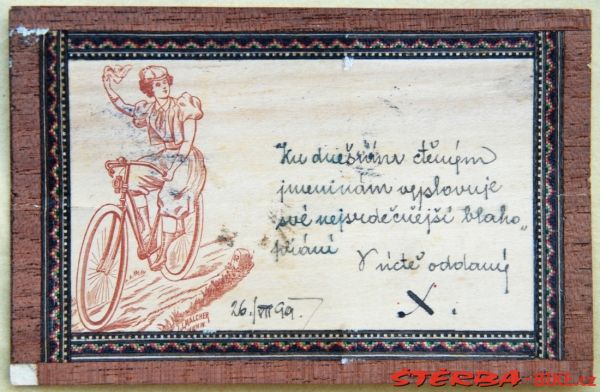 Ku dnešním ctěným
jmeninám vyslovuje
své nejsrdečnější blaho„
přání
V úctě oddaný
26./VII 99.
X.
MALCHER
STERBA-BIKE.cz